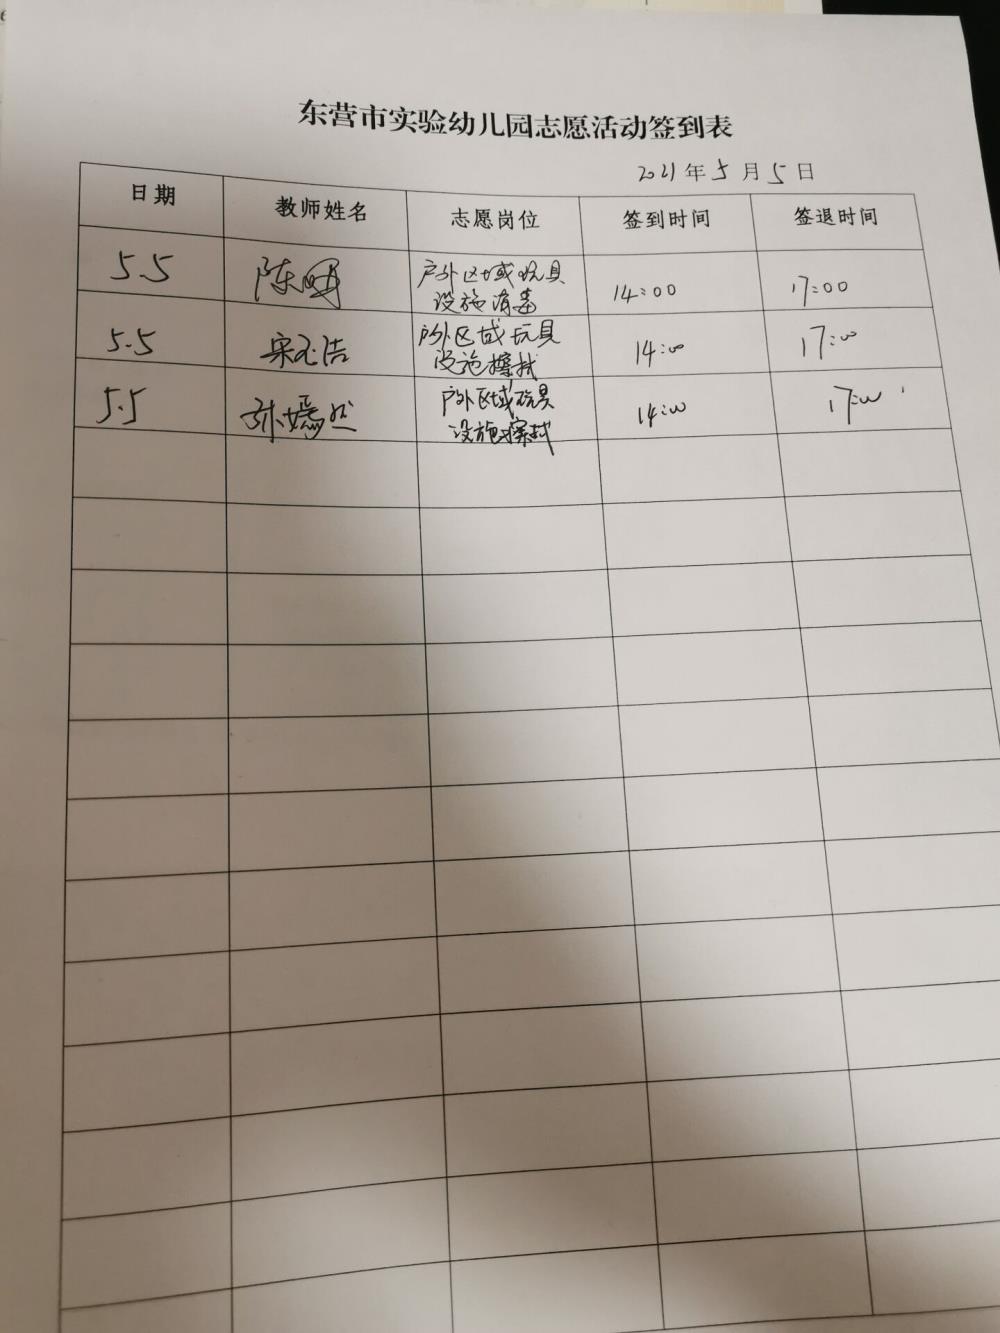 东营市实验幼儿园志愿活动签到表
2021年5月5日
日期 教师姓名 志愿岗位 签到时间 签退时间
5.5 陈明 户外区域玩具 14:00 17:00
设施消毒
5.5 宋玉洁 户外区域玩具 14:00 17:00
设施擦拭
5.5 孙嫣然 户外区域玩具 14:00 17:00
设施擦拭